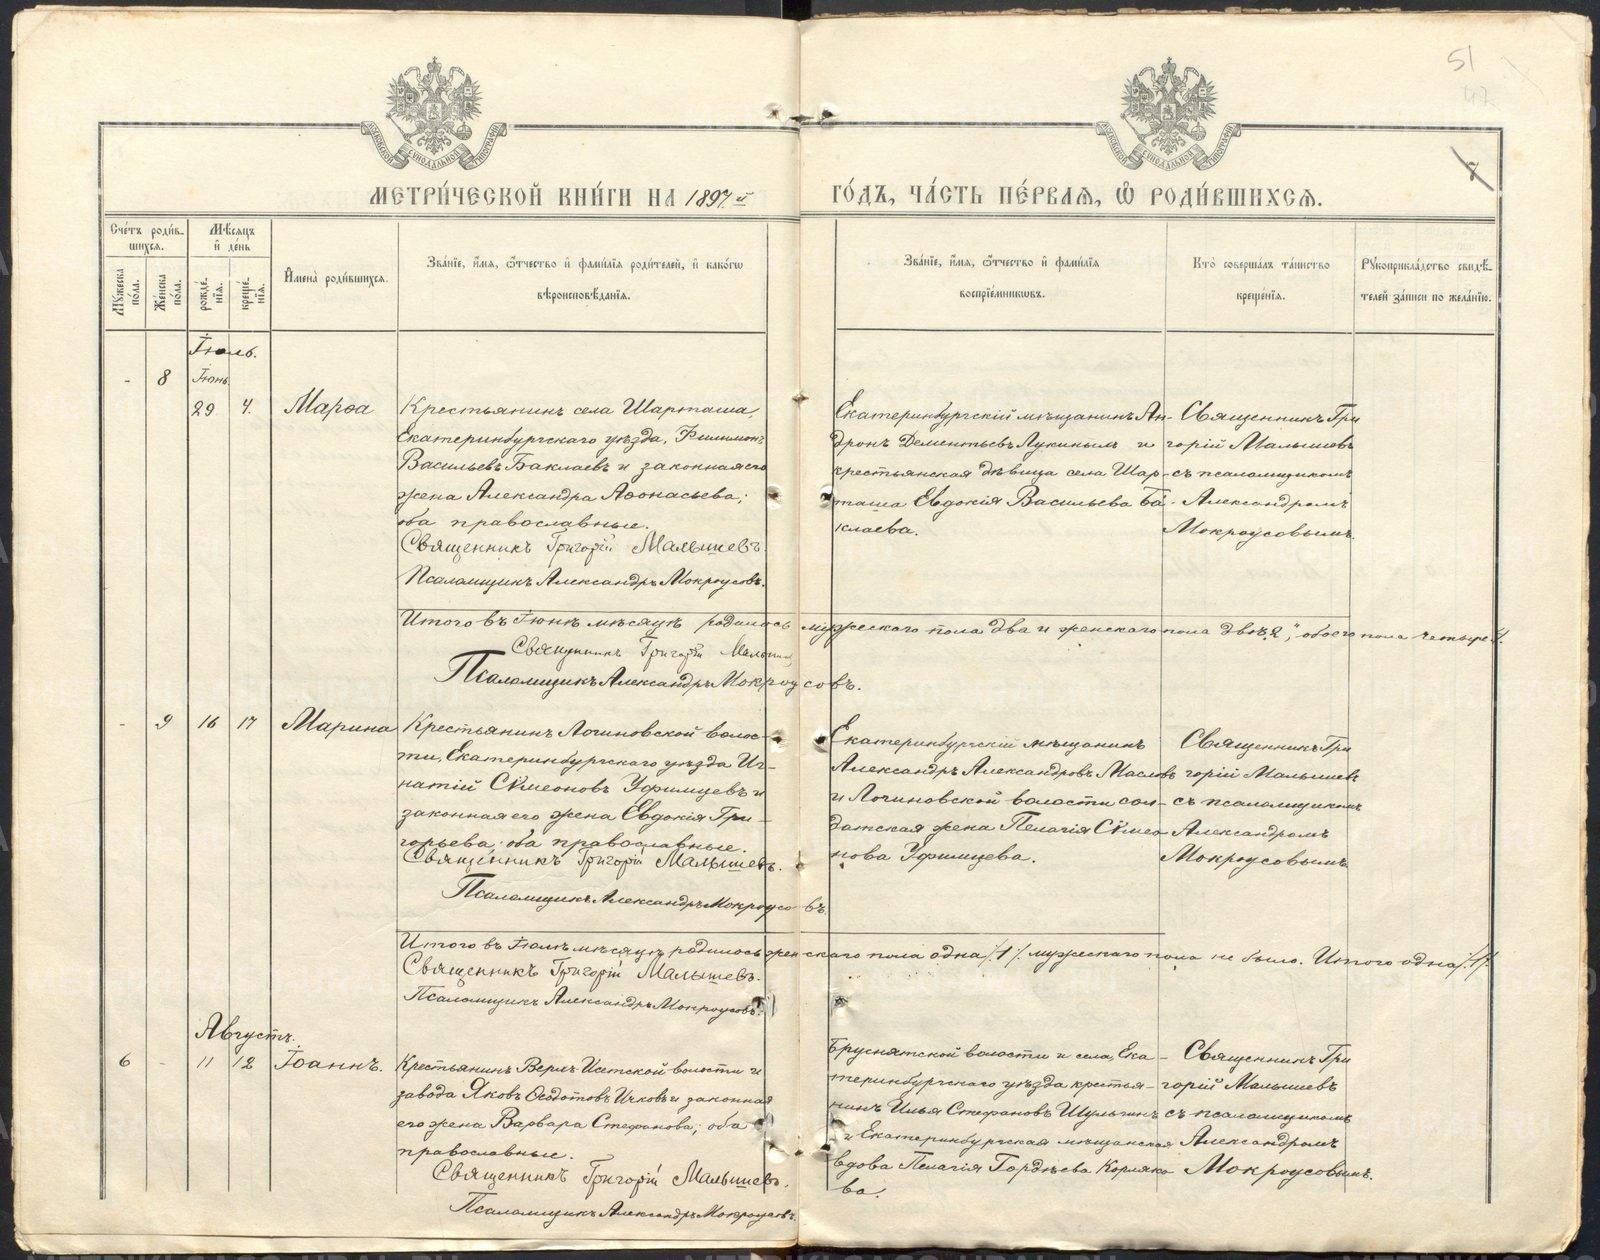 51
47
7
МОСКОВСКОЙ СѴНОДАЛЬНОЙ ТИПОГРАФІИ
МОСКОВСКОЙ СѴНОДАЛЬНОЙ ТИПОГРАФІИ
МЕТРИ́ЧЕСКОЙ КНИ́ГИ НА 1897.й
ГО́ДЪ, ЧА́СТЬ ПЕ́РВАѦ, Ѽ РОДИ́ВШИХСѦ.
Сче́тъ роди́в-
шихсѧ.
Мꙋ́жеска по́ла.
Же́нска по́ла.
Мѣ́сѧцъ
и҆ де́нь
рожде́-
нїѧ.
креще́-
нїѧ.
И҆мена̀ роди́вшихсѧ.
Зва́нїе, и҆́мѧ, ѻ҆́тчество и҆ фамѝлїѧ роди́телей, и҆ како́гѡ
вѣроисповѣ́данїѧ.
Зва́нїе, и҆́мѧ, ѻ҆́тчество и҆ фамѝлїѧ
воспрїе́мникѡвъ.
Кто̀ соверша́лъ та́инство
креще́нїѧ.
Рꙋкоприкла́дство свидѣ́-
телей за́писи по жела́нїю.
Іюль.
- 8 Іюнь
29 4. Марѳа
Крестьянинъ села Шарташа,
Екатеринбургскаго уѣзда, Филимонъ
Васильевъ Баклаевъ и законная его
жена Александра Аѳонасьева;
оба православные.
Священникъ Григорій Малышевъ.
Псаломщикъ Александръ Мокроусовъ.
Екатеринбургскій мѣщанинъ Ан-
дронъ Дементьевъ Лукиныхъ и
крестьянская дѣвица села Шар-
таша Евдокія Васильева Ба-
клаева.
Священникъ Гри
горій Малышевъ
съ псаломщикомъ
Александромъ
Мокроусовымъ.
Итого въ Іюнѣ мѣсяцѣ родилось мужескаго пола два и женскаго пола двѣ „2„ обоего пола четыре 4.
Священникъ Григорій Малышевъ
Псаломщикъ Александръ Мокроусовъ.
- 9 16 17 Марина
Крестьянинъ Логиновской волос-
ти, Екатеринбургскаго уѣзда Иг-
натій Сѵмеоновъ Уфимцевъ и
законная его жена Евдокія Гри-
горьева; оба православные.
Священникъ Григорій Малышевъ.
Псаломщикъ Александръ Мокроусовъ.
Екатеринбургскій мѣщанинъ
Александръ Александровъ Масловъ
и Логиновской волости сол-
датская жена Пелагія Сѵмео
нова Уфимцева.
Священникъ Гри
горій Малышевъ
съ псаломщикомъ
Александромъ
Мокроусовымъ
Итого въ Іюлѣ мѣсяцѣ родилось женскаго пола одна /.1/. мужескаго пола не было. Итого одна /.1/.
Священникъ Григорій Малышевъ.
Псаломщикъ Александръ Мокроусовъ.
Августъ.
6 - 11 12 Іоаннъ.
Крестьянинъ Верхъ Исетской волости и
завода Яковъ Ѳеодотовъ Ичковъ и законная
его жена Варвара Стефанова; оба
православные.
Священникъ Григорій Малышевъ.
Псаломщикъ Александръ Мокроусовъ.
Бруснятской волости и села, Ека-
теринбургскаго уѣзда крестья-
нинъ Илья Стефановъ Шульгинъ
и Екатеринбургская мѣщанская
вдова Пелагія Гордѣева Коряко
ва.
Священникъ Гри
горій Малышевъ
съ псаломщикомъ
Александромъ
Мокроусовымъ.